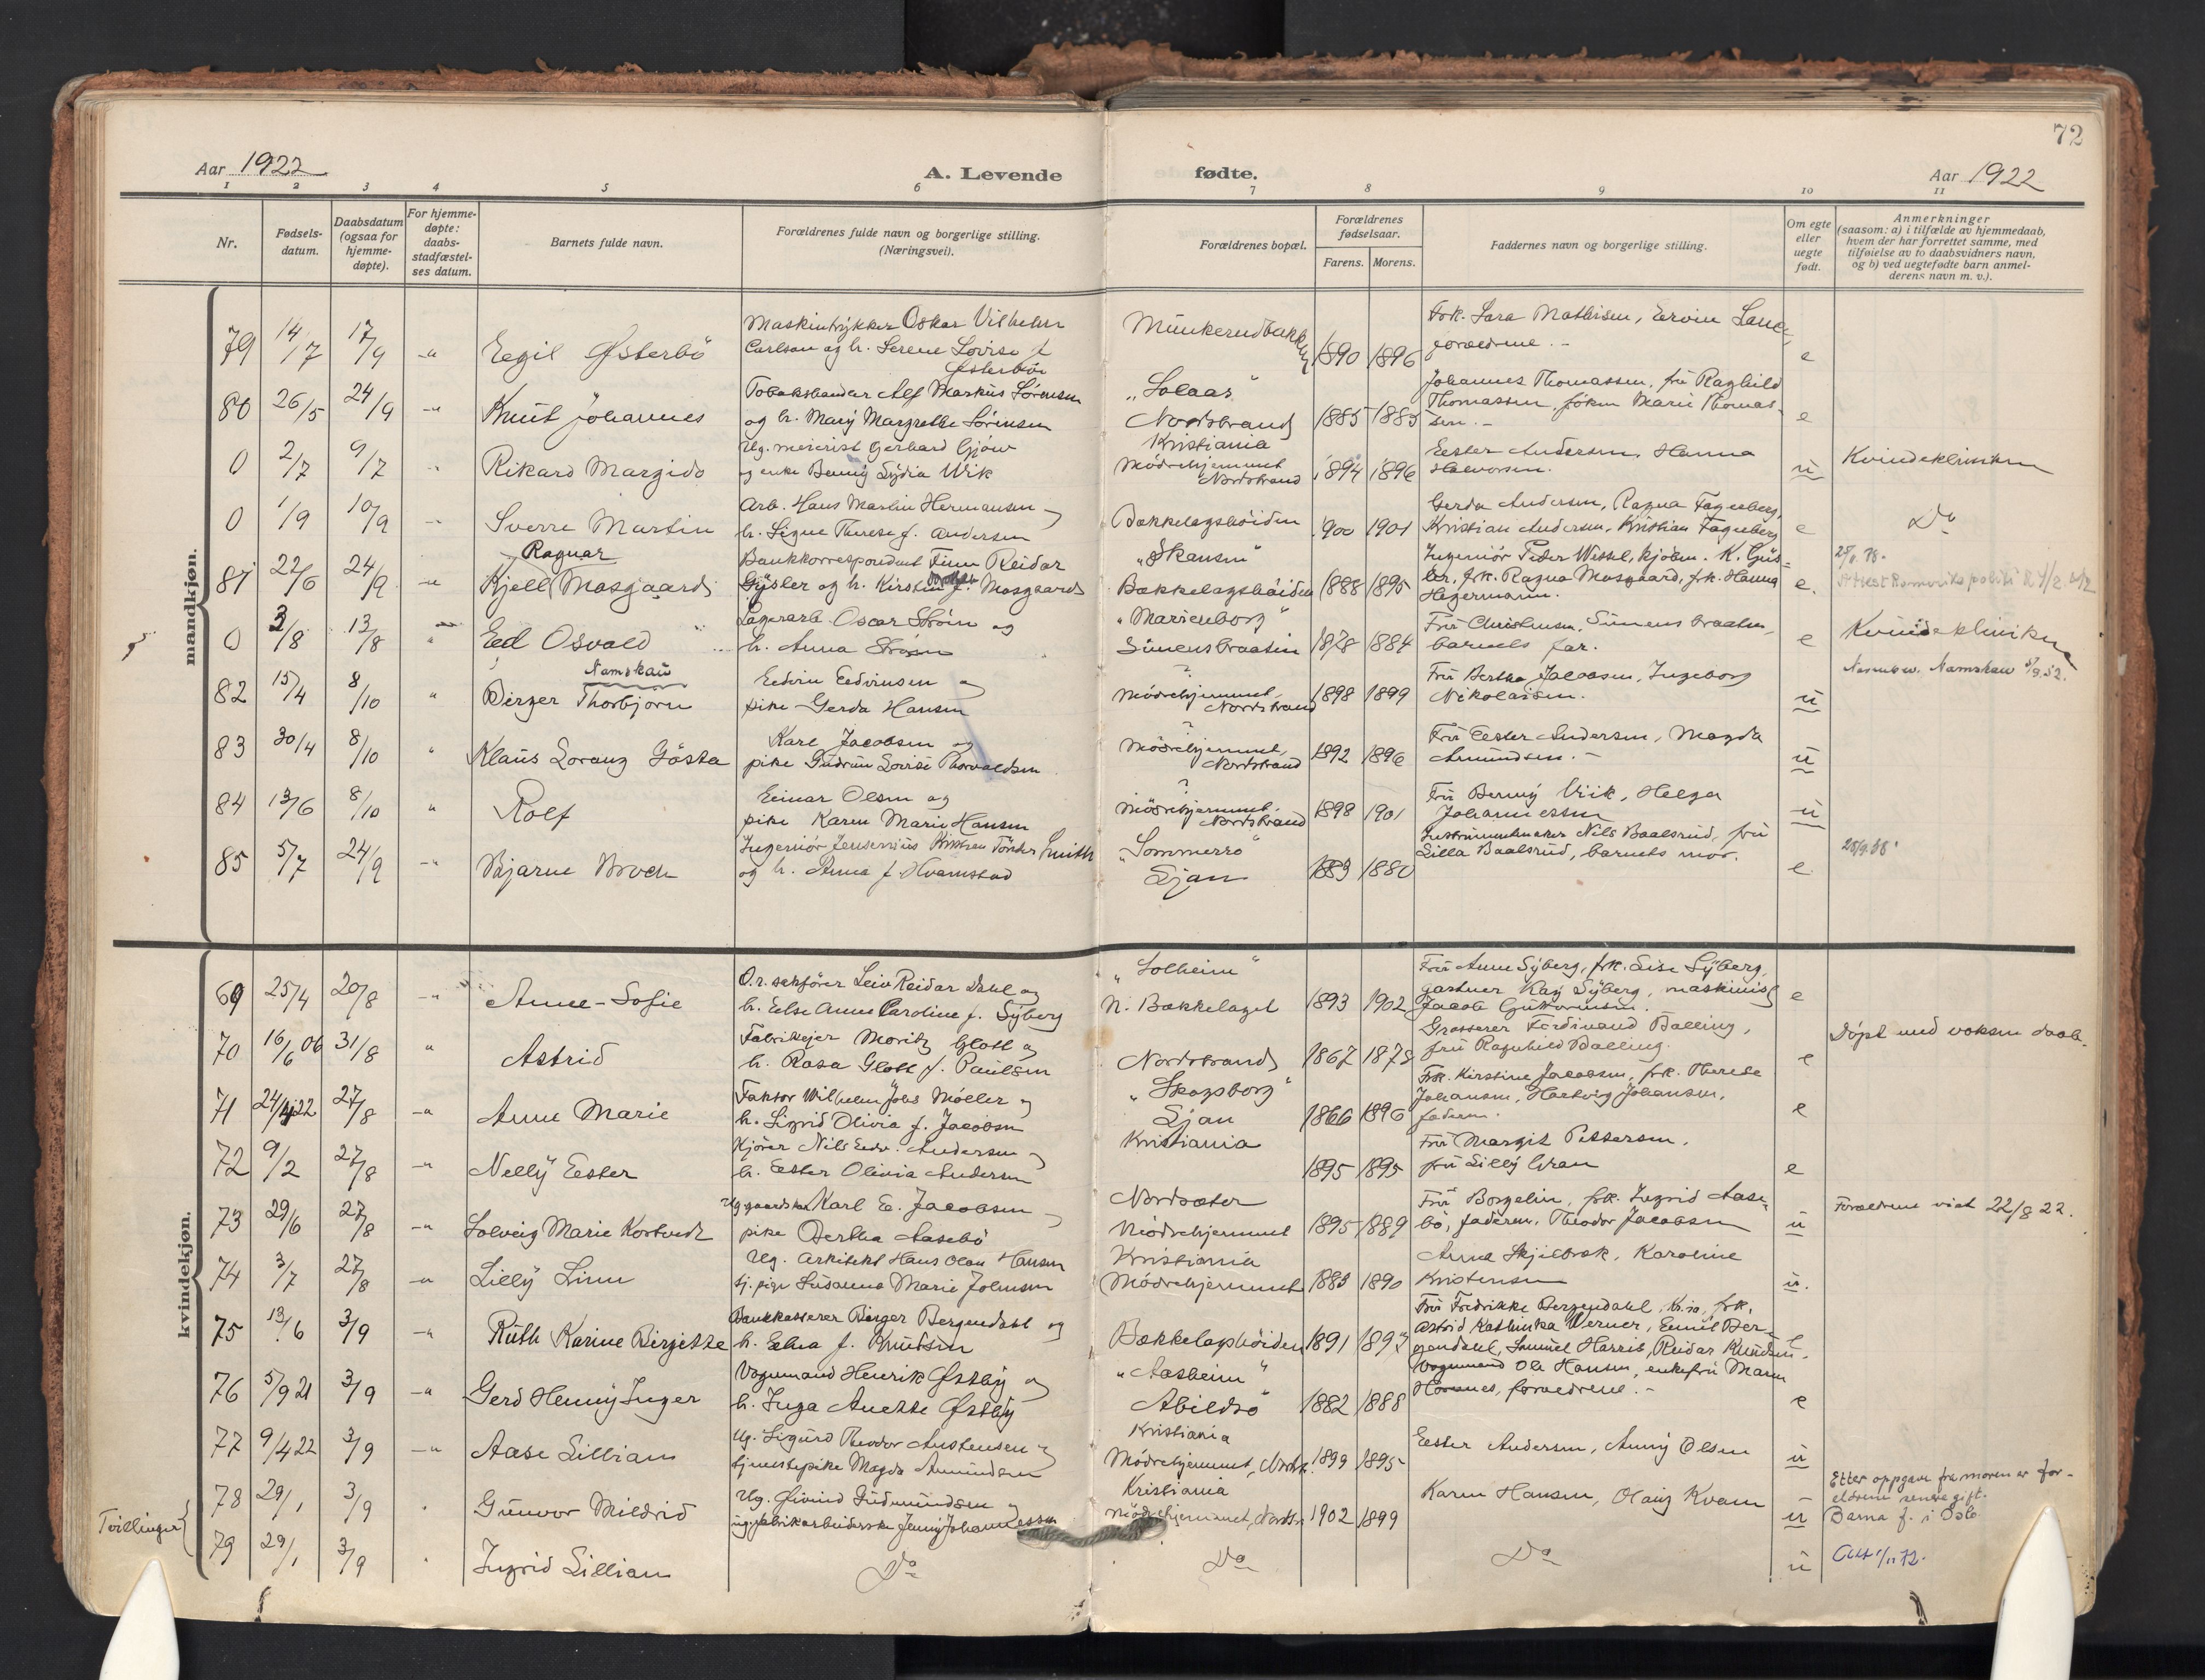 72
Aar 1922
A. Levende
fødte.
Aar 1922
1 2 3 4 5 6 7 8 9 10 11
Nr.
Fødsels-
datum.
Daabsdatum
(ogsaa for
hjemme-
døpte).
For hjemme-
døpte:
daabs-
stadfæstel-
ses datum.
Barnets fulde navn.
Forældrenes fulde navn og borgerlige stilling.
(Næringsvei).
Forældrenes bopæl.
Forældrenes
fødselsaar.
Farens. Morens.
Faddernes navn og borgerlige stilling.
Om egte
eller
uegte
født.
Anmerkninger
(saasom: a) i tilfælde av hjemmedaab,
hvem der har forrettet samme, med
tilføielse av to daabsvidners navn,
og b) ved uegtefødte barn anmel-
derens navn m. v.).
mandkjøn.
79 14/7 17/9 Egil Østerbö
Maskintrykker Oskar Vilhelm
Carlson og h. Serene Lovise f.
Østerbö
Munkerudbakken 1890 1896
Frk. Sara Mathisen, Ervin
forældrene. - e
80 26/5 24/9 Knut Johannes
Tobakshandler Alf Markus Sörensen
og h. Mary Margrethe Sörensen
"Solaas"
Nordstrand 1885 1885
Johannes Thomassen, fru Raghild
Thomassen, fröken Marie Thomas-
sen. - e
0 2/7 9/7 Rikard Margido
Ug. meierist Gerhard Gjöw
og enke Benny Lydia Wik
Kristiania
Mödrehjemmet
Nordstrand 1894 1896
Ester Andersen, Hanna
Halvorsen. u Kvindeklinikken
0 1/9 10/9 Sverre Martin
Arb. Hans Martin Hermansen og
h. Signe Therese f. Andersen
Bækkelagshöiden 1900 1901
Gerda Andersen, Ragna Fageberg,
Kristian Andersen, Kristian Fageberg e Do
81 22/6 24/9 Ragnar
Kjell Mosgaard
Bankkorrespondent Finn Reidar
Gÿsler og h. Kirsten f. Mosgaard
"Skansen"
Bækkelagshöiden 1888 1895
Ingeniör Peder Wessel, kjöbm. K. Gÿs-
ler, frk. Ragna Mosgaard, frk. Hanna
Hegermann. e.
0 3/8 13/8 Eil Osvald
Lagerarb. Oscar Ström og
h. Anna Ström
"Marienborg"
Simensbraaten 1878 1884
Fru Christensen, Simensbraaten,
barnets far. e Kvindeklinikken
82 15/4 8/10 Namskau
Birger Thorbjörn
Edvin Edvinsen og
pike Gerda Hansen
?
Mödrehjemmet,
Nordstrand 1898 1899
Fru Bertha Jacobsen, Ingeborg
Nikolaisen. u
Navnbev. Namskau 5/9.52.
83 30/4 8/10 Klaus Lorang Gösta
Karl Jacobsen og
pike Gudrun Lovise Thorvaldsen
?
Mödrehjemmet,
Nordstrand 1892 1896
Fru Ester Andersen, Magda
Amundsen. - u
84 13/6 8/10 Rolf
Einar Olsen og
pike Karen Marie Hansen
?
Mödrehjemmet,
Nordstrand 1898 1901
Fru Benny Wiik, Helga
Johannessen u
85 5/7 24/9 Bjarne Broch
Ingeniör Jensenius Kristian Tönder Smith
og h. Anna f. Hvamstad
"Sommerro"
Ljan 1883 1880
Instrumentmaker Nils Baalsrud, fru
Silla Baalsrud, barnets mor. e
kvindekjøn.
69 25/4 20/8 Anne-Sofie
O.r. sakförer Leiv Reidar Dahl og
h. Else Anna Caroline f. Syberg
"Solheim"
N. Bækkelaget 1893 1902
Fru Anna Syberg, frk. Lise Syberg,
gartner Kay Syberg, maskinist
Jacob Guttormsen. e
70 16/6 06 31/8 Astrid
Fabrikeier Moritz Glott og
h. Rosa Glott f. Paulsen
Nordstrand 1867 1875
Grosserer Ferdinand Balling,
fru Ragnhild Balling. e Döpt med voksen daab.
71 24/4 22 27/8 Anne Marie
Faktor Wilhelm Johs Möller og
h. Sigrid Olivia f. Jacobsen
"Skogsborg"
Ljan 1866 1896
Frk. Kirstine Jacobsen, frk. Therese
Johansen, Hartvig Johansen,
faderen. e
72 9/2 27/8 Nelly Ester
Kjörer Nils Edv. Andersen og
h. Ester Olivia Andersen
Kristiania
1895 1895
Fru Margit Pettersen,
fru Lilly Gran e
73 29/6 27/8 Solveig Marie Kortvedt
Karl E. Jacobsen og
pike Bertha Aasebö
Nordsæter
Mödrehjemmet 1895 1889
Fru Borgelin, frk. Ingrid Aase-
bö, faderen, Theodor Jacobsen u Forældrene viet 22/8 22.
74 3/7 27/8 Lilly Linn
Ug. Arkitekt Hans Olav Hansen
tj. pige Susanna Marie Johnsen
Kristiania
Mödrehjemmet 1883 1890
Anna Skjelbæk, Karoline
Kristensen u.
75 13/6 3/9 Ruth Karine Birgitte
Bankkasserer Birger Bergendahl og
h. Elna f. Knudsen
Bækkelagshöiden 1891 1893
Fru Fredrikke Bergendahl, Kr.ia, frk.
Astrid Kathinka Werner, Emil Ber-
gendahl, Samuel Harris, Reidar Knudsen. e
76 5/9 21 3/9 Gerd Henny Inger
Vognmand Henrik Østby og
h. Inga Anette Østby
"Aasheim"
Abildsö 1882 1888
Vognmand Ole Hansen, enkefru Maren
Hovnes, forældrene. - e
77 9/4 22 3/9 Aase Lillian
Ug. Sigurd Theodor Austensen og
tjenestepike Magda Amundsen
Kristiania
Mödrehjemmet, Nordstr. 1899 1895
Ester Andersen, Anny Olsen u
Tvillinger
78 29/1 3/9 Gunvor Mildrid
Ug. Øivind Gudmundsen og
ug. fabrikarbeiderske Jenny Johannessen
Kristiania
Mödrehjemmet, Nordstr. 1902 1899
Karen Hansen, Olaug Kvam u
Etter oppgave fra moren er for-
eldrene senere gift.
Barna f. i Oslo
79 29/1 3/9 Ingrid Lillian
Do Do Do u
Att 1/11 72.